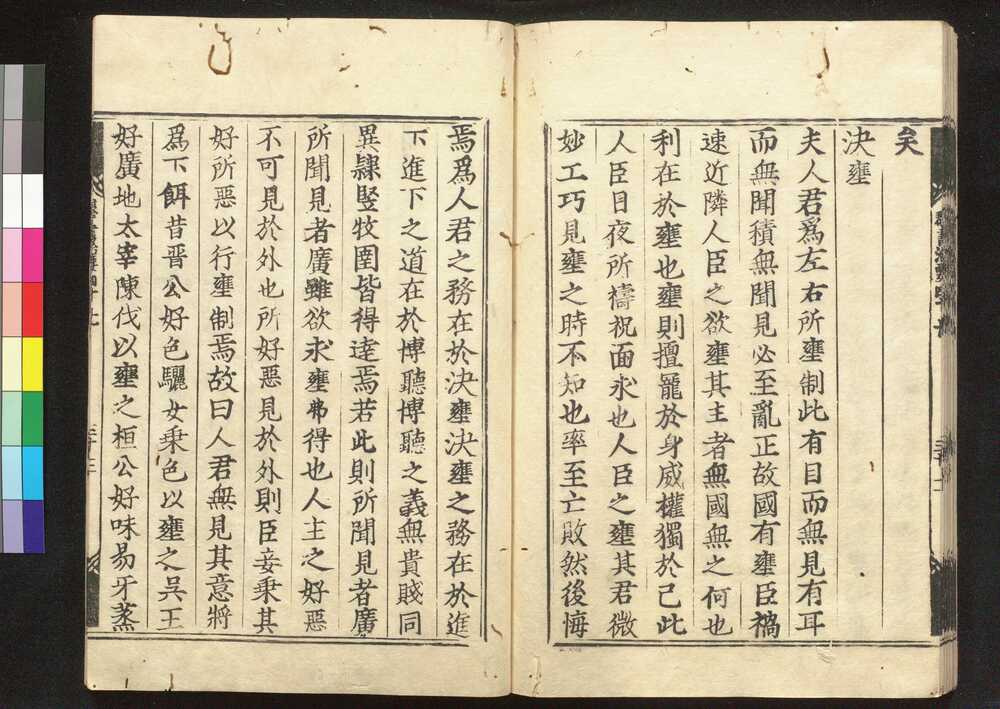 矣
決壅
夫人君爲左右所壅制此有目而無見有耳
而無聞積無聞見必至亂正故國有壅臣禍
速近隣人臣之欲壅其主者無國無之何也
利在於壅也壅則擅寵於身威權獨於己此
人臣日夜所禱祝面求也人臣之壅其君微
妙工巧見壅之時不知也率至亡敗然後悔
焉爲人君之務在於決壅決壅之務在於進
下進下之道在於博聽博聽之義無貴賤同
異隷竪牧圉皆得逹焉若此則所聞見者廣
所聞見者廣雖欲求壅弗得也人主之好惡
不可見於外也所好惡見於外則臣妾乗其
好所惡以行壅制焉故曰人君無見其意將
爲下餌昔晋公好色驪女乗色以壅之呉王
好廣地太宰陳伐以壅之桓公好味易牙蒸